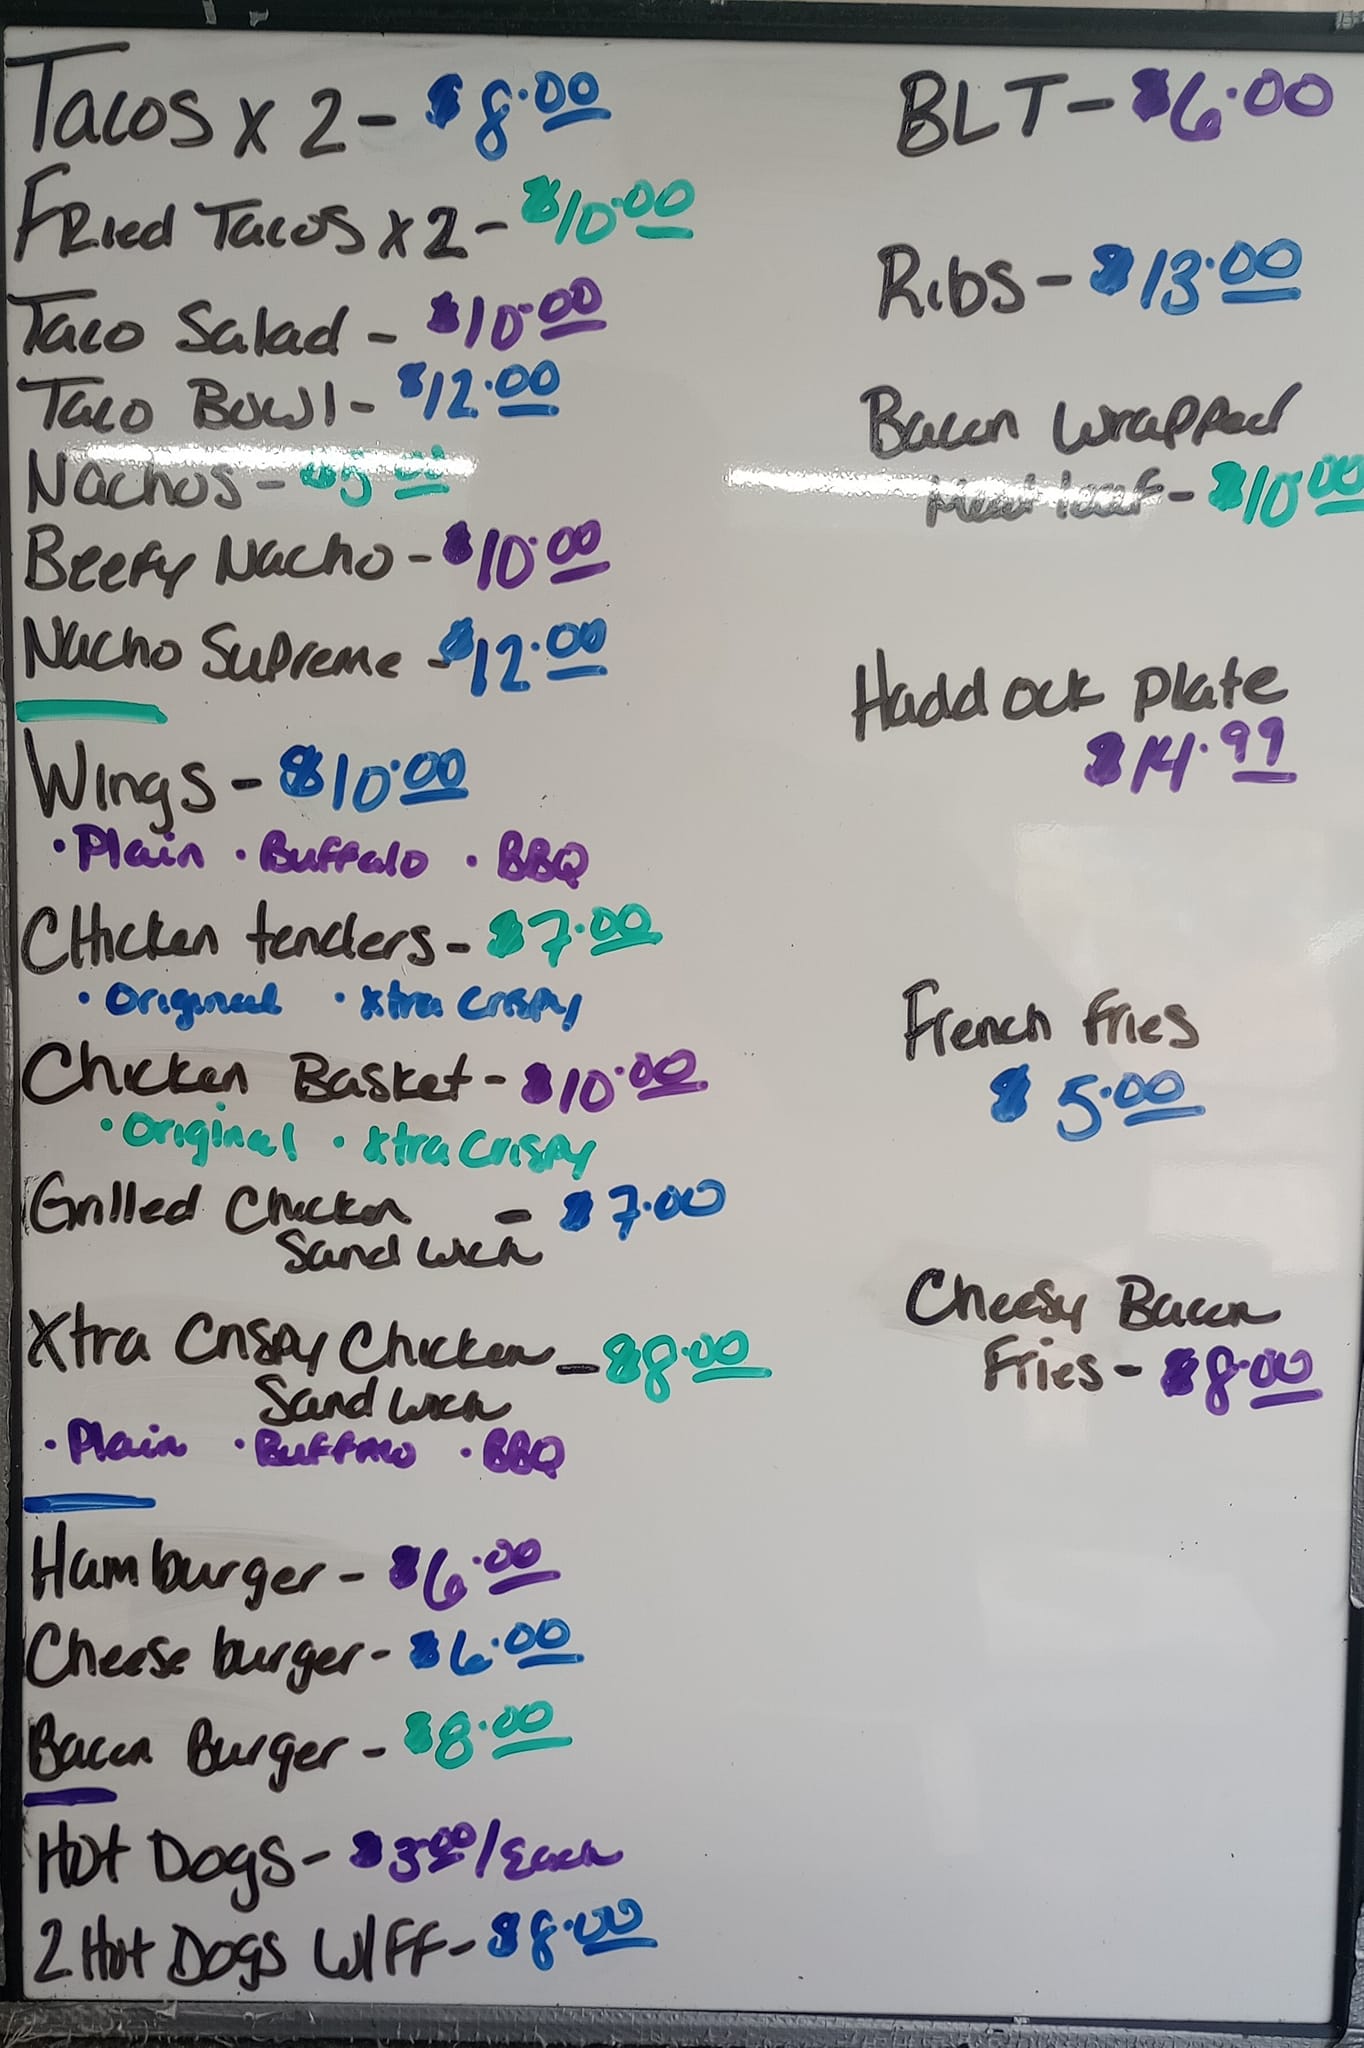 Tacos x 2 - $8.00
Fried Tacos x 2 - $10.00
Taco Salad - $10.00
Taco Bowl - $12.00
Nachos - $5.00
Beefy Nacho - $10.00
Nacho Supreme - $12.00
Wings - $10.00
• Plain • Buffalo • BBQ
Chicken tenders - $7.00
• Original • Xtra Crispy
Chicken Basket - $10.00
• Original • Xtra Crispy
Grilled Chicken - $7.00
Sandwich
Xtra Crispy Chicken - $8.00
Sandwich
• Plain • Buffalo • BBQ
Hamburger - $6.00
Cheese burger - $6.00
Bacon Burger - $8.00
Hot Dogs - $3.00/Each
2 Hot Dogs W/FF - $8.00
BLT - $6.00
Ribs - $13.00
Bacon Wrapped
Meat loaf - $10.00
Haddock Plate
$14.99
French Fries
$5.00
Cheesy Bacon
Fries - $8.00